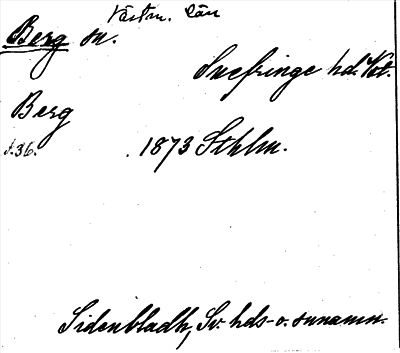 Västm. Län
Berg sn.
Snefringe hd. Vst.
Berg
s. 36. . 1873 Sthlm.
Sidenbladh, Sv. hds- o. sunamn.